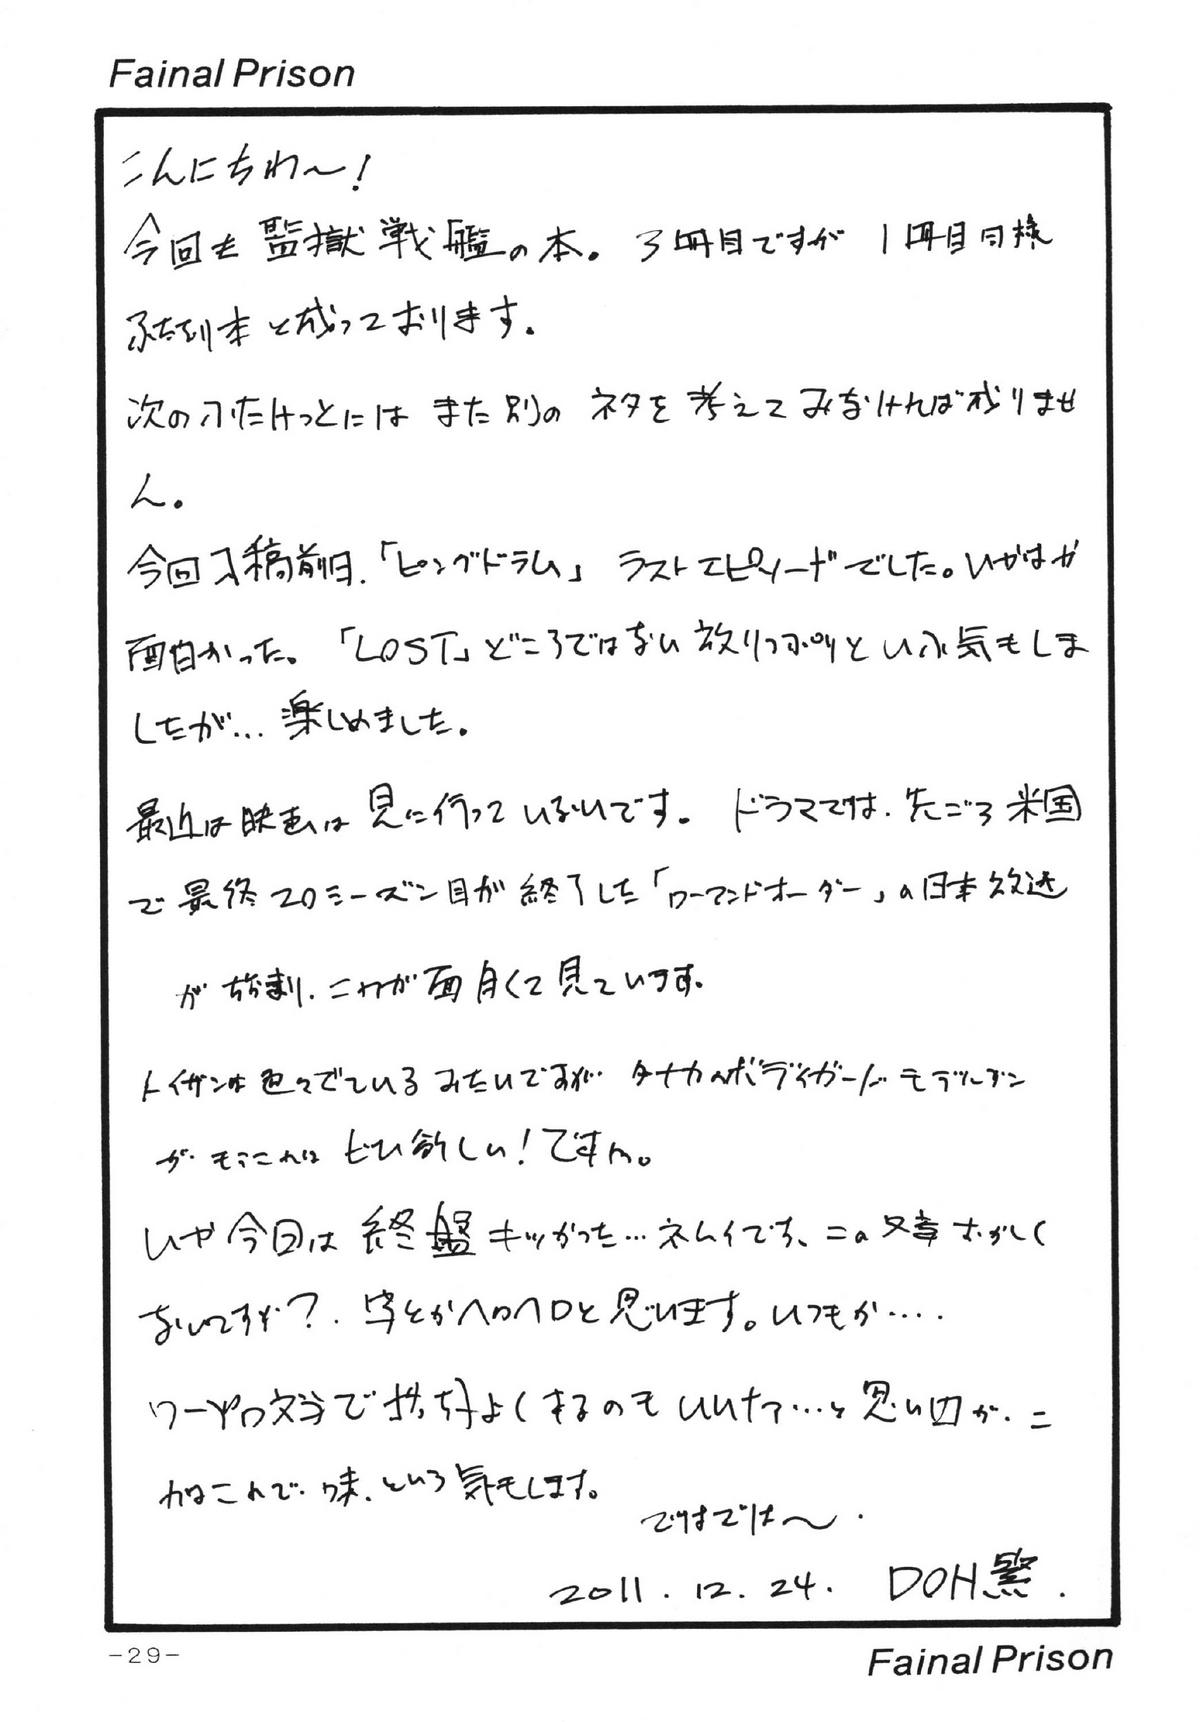 Fainal Prison
こんにちわ〜!
今回も監獄戦艦の本。3冊目ですが1冊目同様
ふたなり本と成っております。
次のふたけっとには また別の ネタを考えてみなければ成りませ
ん。
今回入稿前日、「ピングドラム」 ラストエピソードでした。いやはや
面白かった。「LOST」どころではない放りっぷりという気もしま
したが… 楽しめました。
最近は映画は見に行っていないです。 ドラマでは、先ごろ米国
で最終20シーズン目が終了した「ローアンドオーダー」の日本放送
が始まり、これが面白くて見ています。
トイガンは色々でているみたいですが タナカのボディガードモデルガン
が、もうこれは ぜひ欲しい!ですね。
いや今回は終盤キツかった…ネムイです、この文章おかしく
ないですか?、字とかヘロヘロと思います。いつもか‥‥.
ワープロ文字で格好よくするのもいいなァ…と思い四が、こ
れはこれで、味、という気もします。
ではでは〜.
2011.12.24. DOH繁.
-29-
Fainal Prison